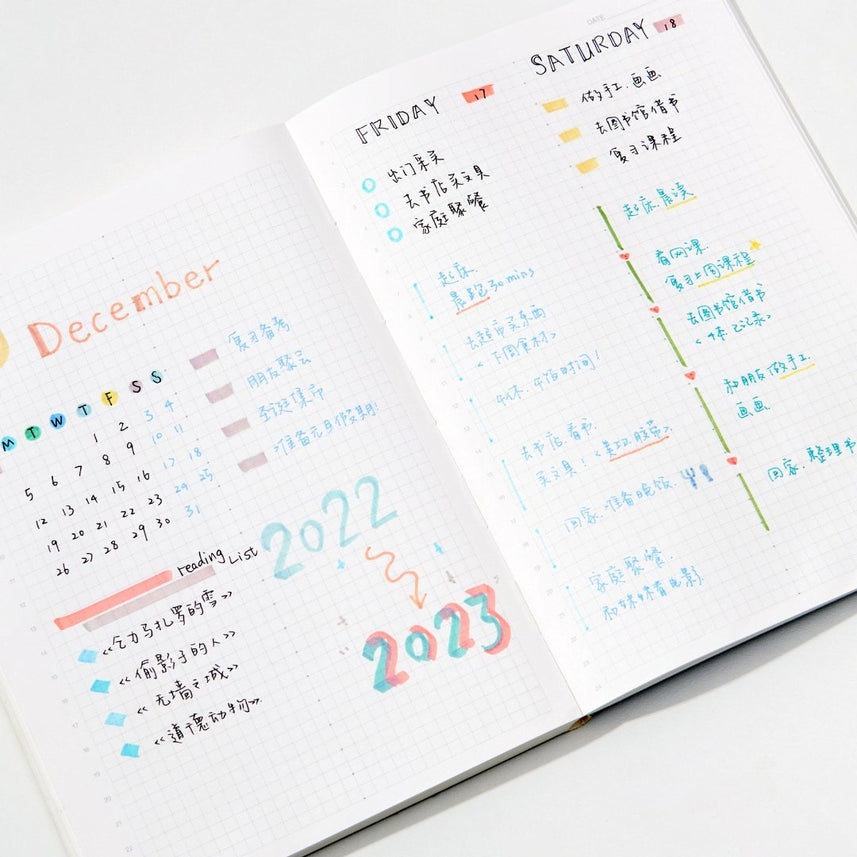 December
M T W T F S S
1 2 3 4
5 6 7 8 9 10 11
12 13 14 15 16 17 18
19 20 21 22 23 24 25
26 27 28 29 30 31
复习备考
朋友聚会
圣诞集市
准备元旦假期!
reading List
《乞力马扎罗的雪》
《偷影子的人》
《无墙之城》
《道德动物》
2022
2023
FRIDAY 17
出门采买
去书店买文具
家庭聚餐
起床.
晨跑30 mins
去超市买东西
<下周食材>
午休. 午饭时间!
去书店看书.
买文具! <美工刀.胶带>
回家.准备晚饭.
家庭聚餐
和妹妹看电影
DATE
SATURDAY 18
做手工.画画
去图书馆借书
复习课程
起床.晨读
看网课.
复习上周课程
去图书馆借书
和朋友做手工.
画画.
回家.整理书